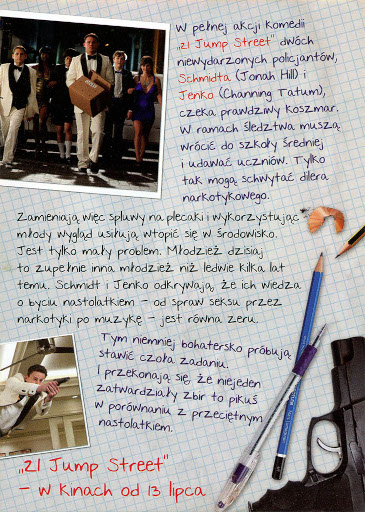 W pełnej akcji komedii
„21 Jump Street” dwóch
niewydarzonych policjantów,
Schmidta (Jonah Hill) i
Jenko (Channing Tatum),
czeka prawdziwy koszmar.
W ramach śledztwa muszą
wrócić do szkoły średniej
i udawać uczniów. Tylko
tak mogą schwytać dilera
narkotykowego.
Zamieniają więc spluwy na plecaki i wykorzystując
młody wygląd usiłują wtopić się w środowisko.
Jest tylko mały problem. Młodzież dzisiaj
to zupełnie inna młodzież niż ledwie kilka lat
temu. Schmidt i Jenko odkrywają, że ich wiedza
o byciu nastolatkiem – od spraw seksu przez
narkotyki po muzykę – jest równa zeru.
Tym niemniej bohatersko próbują
stawić czoła zadaniu.
I przekonają się, że niejeden
zatwardziały zbir to pikuś
w porównaniu z przeciętnym
nastolatkiem.
„21 Jump Street”
– w kinach od 13 lipca